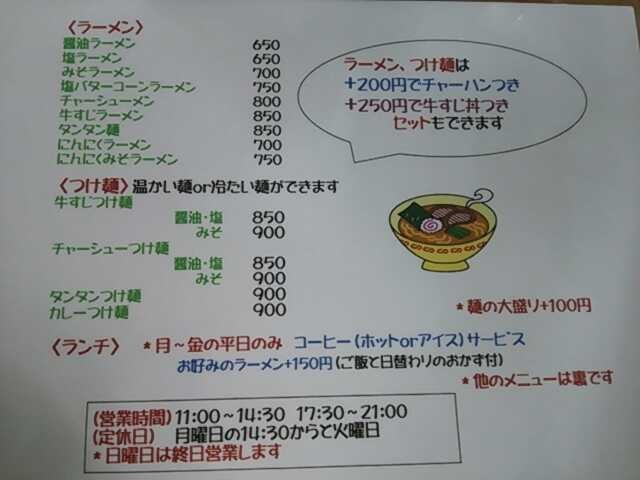 〈ラーメン〉
醤油ラーメン 650
塩ラーメン 650
みそラーメン 700
塩バターコーンラーメン 750
チャーシューメン 800
牛すじラーメン 850
タンタン麺 850
にんにくラーメン 700
にんにくみそラーメン 750
ラーメン、つけ麺は
+200円でチャーハンつき
+250円で牛すじ丼つき
セットもできます
〈つけ麺〉温かい麺or冷たい麺ができます
牛すじつけ麺
醤油・塩 850
みそ 900
チャーシューつけ麺
醤油・塩 850
みそ 900
タンタンつけ麺 900
カレーつけ麺 900
*麺の大盛り+100円
〈ランチ〉 *月~金の平日のみ コーヒー(ホットorアイス)サービス
お好みのラーメン+150円(ご飯と日替わりのおかず付)
*他のメニューは裏です
(営業時間) 11:00~14:30 17:30~21:00
(定休日) 月曜日の14:30からと火曜日
*日曜日は終日営業します